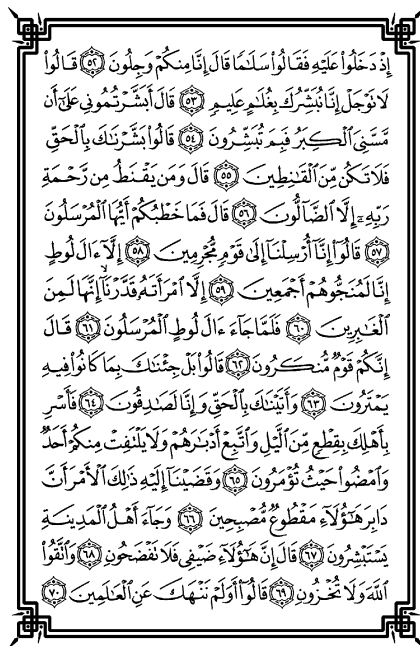 إِذْ دَخَلُوا۟ عَلَيْهِ فَقَالُوا۟ سَلَٰمًا قَالَ إِنَّا مِنكُمْ وَجِلُونَ ٥٢ قَالُوا۟
لَا تَوْجَلْ إِنَّا نُبَشِّرُكَ بِغُلَٰمٍ عَلِيمٍ ٥٣ قَالَ أَبَشَّرْتُمُونِى عَلَىٰٓ أَن
مَّسَّنِىَ ٱلْكِبَرُ فَبِمَ تُبَشِّرُونَ ٥٤ قَالُوا۟ بَشَّرْنَٰكَ بِٱلْحَقِّ
فَلَا تَكُن مِّنَ ٱلْقَٰنِطِينَ ٥٥ قَالَ وَمَن يَقْنَطُ مِن رَّحْمَةِ
رَبِّهِۦٓ إِلَّا ٱلضَّآلُّونَ ٥٦ قَالَ فَمَا خَطْبُكُمْ أَيُّهَا ٱلْمُرْسَلُونَ
٥٧ قَالُوٓا۟ إِنَّآ أُرْسِلْنَآ إِلَىٰ قَوْمٍ مُّجْرِمِينَ ٥٨ إِلَّآ ءَالَ لُوطٍ
إِنَّا لَمُنَجُّوهُمْ أَجْمَعِينَ ٥٩ إِلَّا ٱمْرَأَتَهُۥ قَدَّرْنَآ ۙ إِنَّهَا لَمِنَ
ٱلْغَٰبِرِينَ ٦٠ فَلَمَّا جَآءَ ءَالَ لُوطٍ ٱلْمُرْسَلُونَ ٦١ قَالَ
إِنَّكُمْ قَوْمٌ مُّنكَرُونَ ٦٢ قَالُوا۟ بَلْ جِئْنَٰكَ بِمَا كَانُوا۟ فِيهِ
يَمْتَرُونَ ٦٣ وَأَتَيْنَٰكَ بِٱلْحَقِّ وَإِنَّا لَصَٰدِقُونَ ٦٤ فَأَسْرِ
بِأَهْلِكَ بِقِطْعٍ مِّنَ ٱلَّيْلِ وَٱتَّبِعْ أَدْبَٰرَهُمْ وَلَا يَلْتَفِتْ مِنكُمْ أَحَدٌ
وَٱمْضُوا۟ حَيْثُ تُؤْمَرُونَ ٦٥ وَقَضَيْنَآ إِلَيْهِ ذَٰلِكَ ٱلْأَمْرَ أَنَّ
دَابِرَ هَٰٓؤُلَآءِ مَقْطُوعٌ مُّصْبِحِينَ ٦٦ وَجَآءَ أَهْلُ ٱلْمَدِينَةِ
يَسْتَبْشِرُونَ ٦٧ قَالَ إِنَّ هَٰٓؤُلَآءِ ضَيْفِى فَلَا تَفْضَحُونِ ٦٨ وَٱتَّقُوا۟
ٱللَّهَ وَلَا تُخْزُونِ ٦٩ قَالُوٓا۟ أَوَلَمْ نَنْهَكَ عَنِ ٱلْعَٰلَمِينَ ٧٠